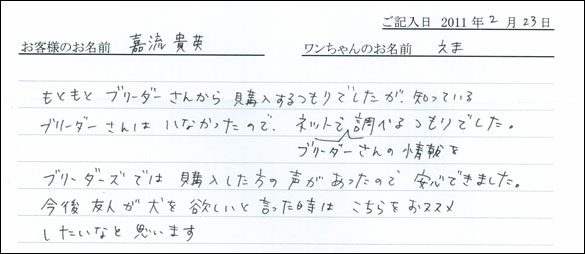 ご記入日 2011 年 2 月 23 日
お客様のお名前 嘉流 貴英 ワンちゃんのお名前 えま
もともと ブリーダーさんから 購入するつもりでしたが、知っている
ブリーダーさんは いなかったので、ネットで調べるつもりでした。
ブリーダーさんの情報を
ブリーダーズでは 購入した方の声があったので 安心できました。
今後友人が犬を欲しいと言った時は こちらをおススメ
したいなと思います